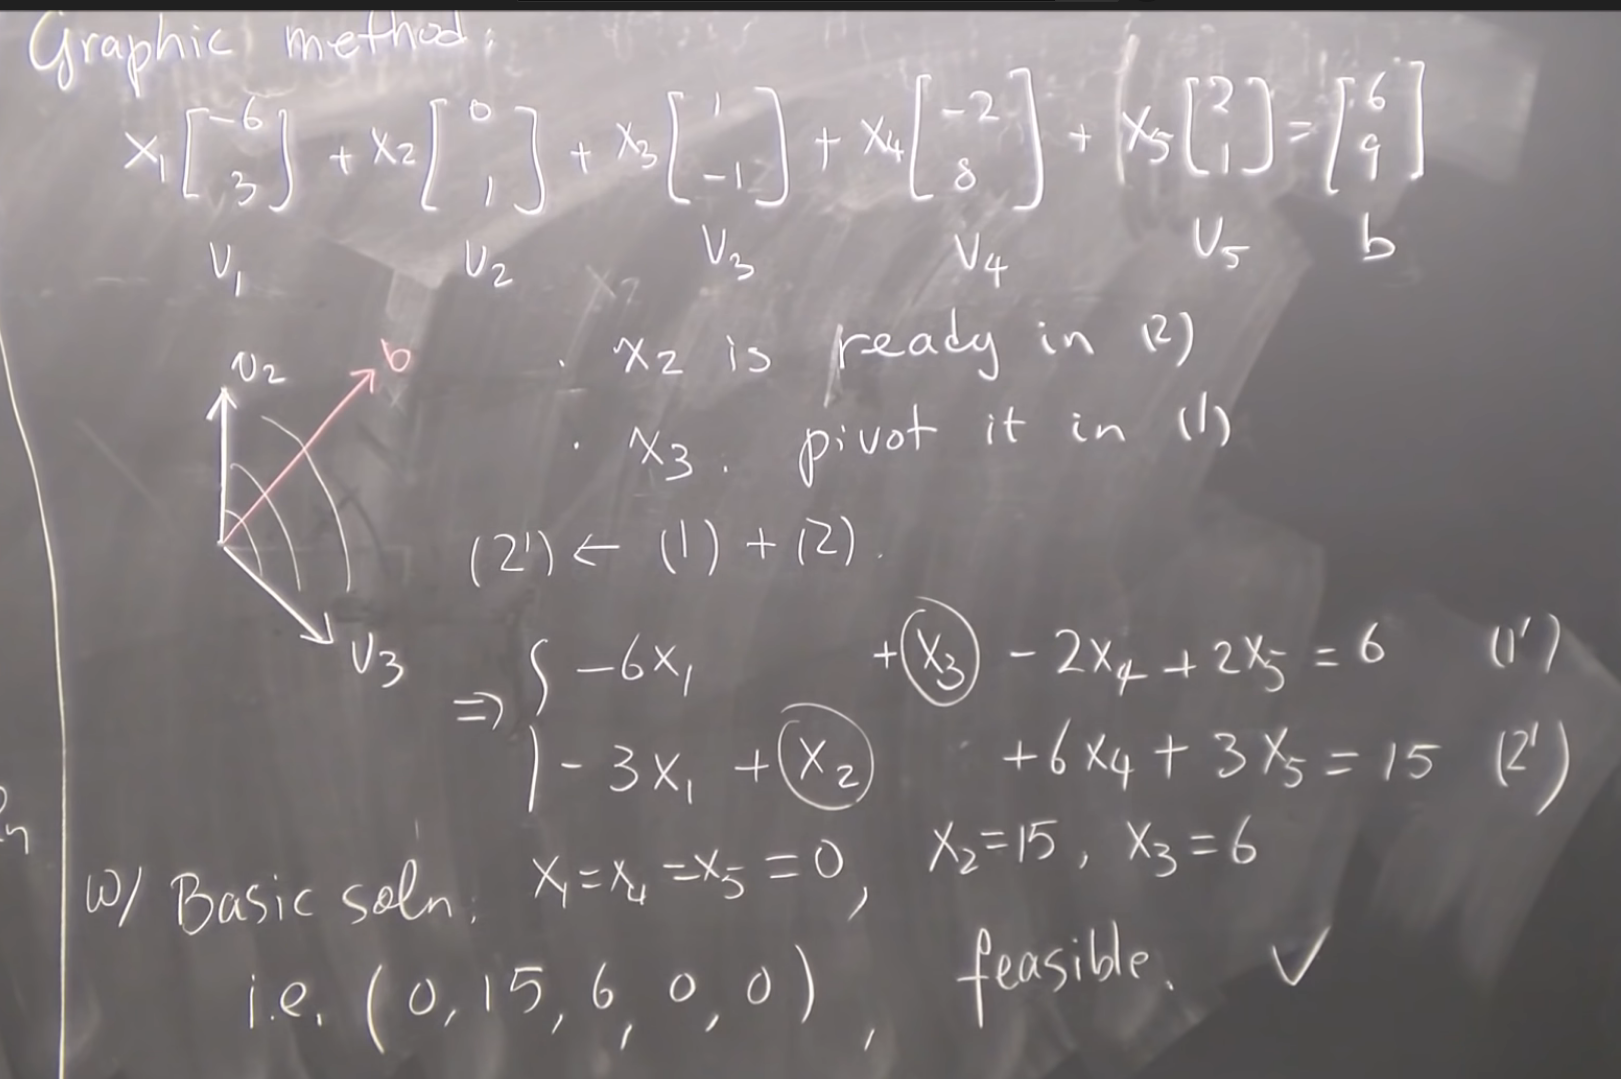 Graphic method:
x₁[-6 3] + x₂[0 1] + x₃[1 -1] + x₄[-2 8] + x₅[2 1] = [6 9]
V₁ V₂ V₃ V₄ V₅ b
v₂ b
· x₂ is ready in (2)
· x₃. pivot it in (1)
(2') ← (1) + (2).
V₃
⇒ { -6x₁ + x₃ - 2x₄ + 2x₅ = 6 (1')
-3x₁ + x₂ + 6x₄ + 3x₅ = 15 (2')
w/ Basic soln: x₁=x₄=x₅=0, x₂=15, x₃=6
i.e. (0,15,6,0,0), feasible. ✓